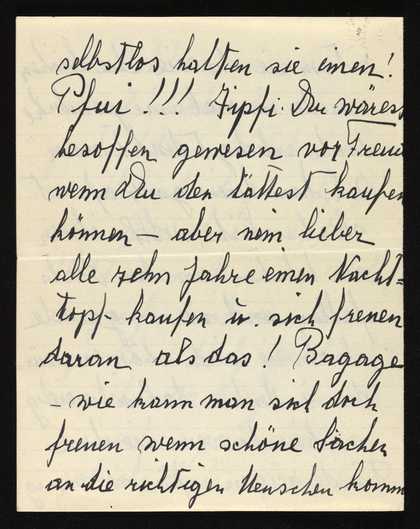 selbstlos halten sie einen!
Pfui!!! Zipfi. Du wärest
besoffen gewesen vor Freud
wenn du den hättest kaufen
können – aber nein lieber
alle zehn Jahre einen Nacht-
topf kaufen u. sich freuen
daran als das! Bagage
– wie kann man sich doch
freuen wenn schöne Sachen
an die richtigen Menschen komm